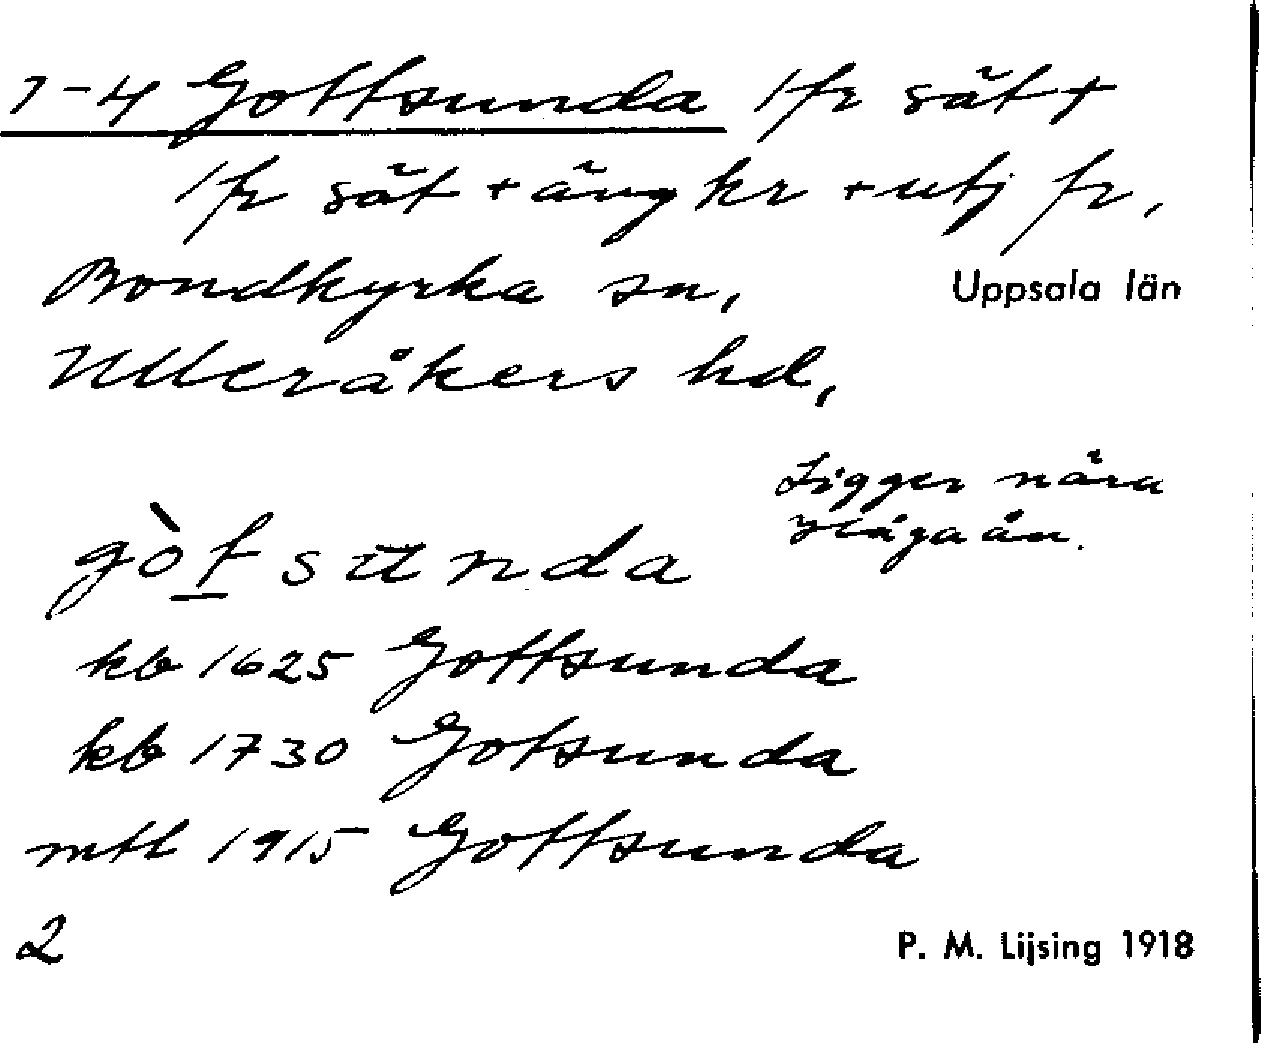 1-4 Gottsunda 1 fr sät +
1 fr sät + äng kr + utj fr,
Bondkyrka sn, Uppsala län
Ulleråkers hd,
Ligger nära
Hågaån.
gòtsunda
kb 1625 Gottsunda
kb 1730 Gotsunda
mtl 1915 Gottsunda
2
P. M. Lijsing 1918